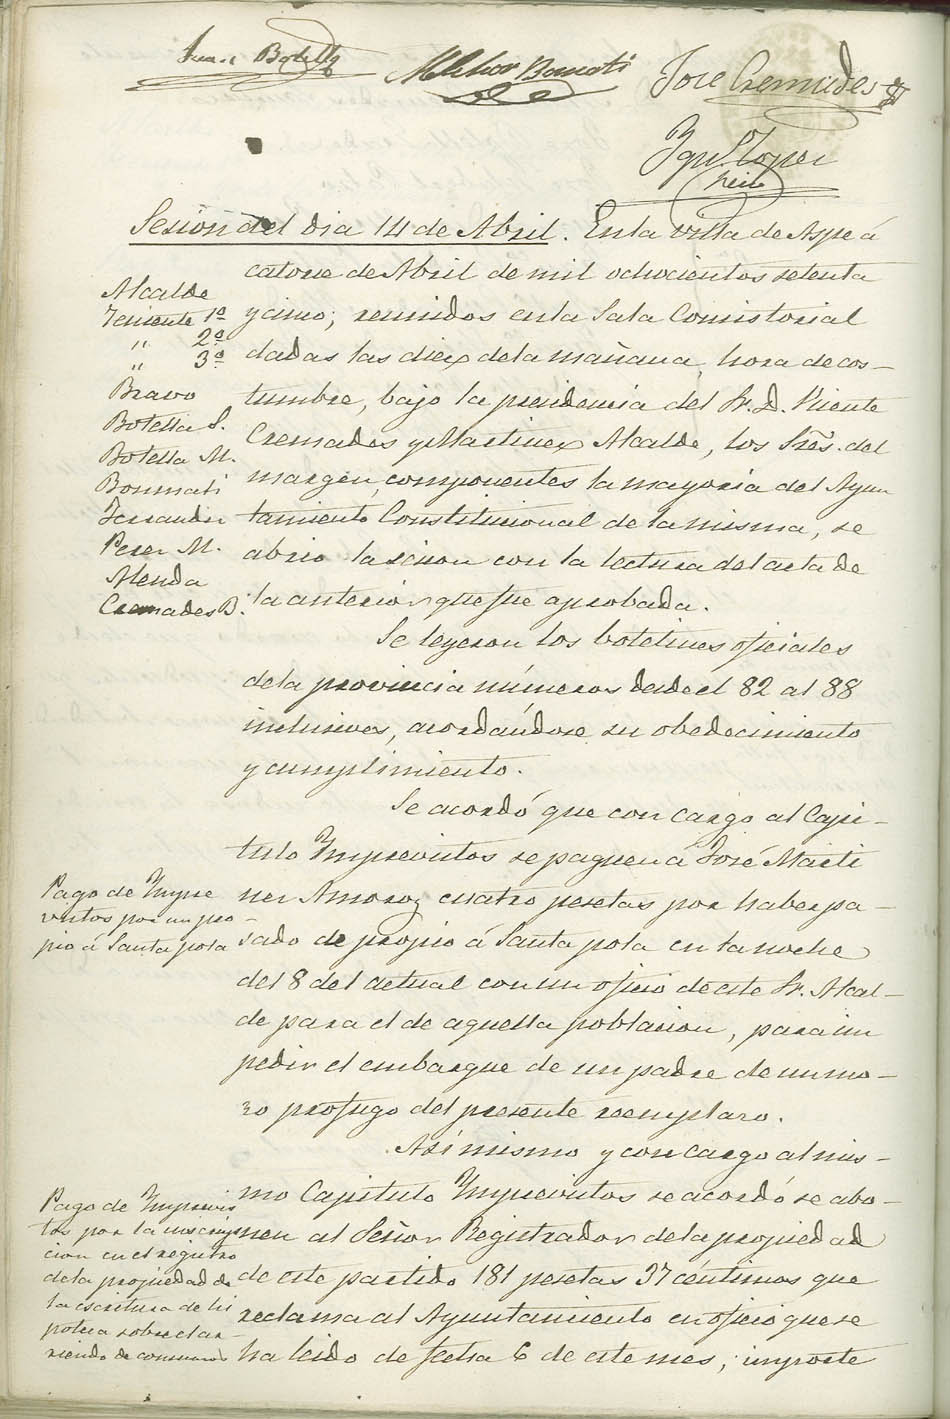 Juan Botella
Melchor Bonmati
José Cremades
Sesion del dia 14 de Abril. En la villa de Aspe á
catorce de Abril de mil ochocientos setenta
y cinco; reunidos en la Sala Consistorial
dadas las diez de la mañana, hora de cos-
tumbre, bajo la presidencia del Sr. D. Vicente
Cremades y Martinez Alcalde, los Sres. del
margen, componentes la mayoria del Ayun
tamiento Constitucional de la misma, se
abrio la sesion con la lectura del acta de
la anterior que fue aprobada.
Alcalde
Teniente 1º
" 2º
" 3º
Bravo
Botella S.
Botella M.
Bonmati
Ferrandiz
Perez M.
Alenda
Cremades B.
Se leyeron los boletines oficiales
de la provincia números desde el 82 al 88
inclusives, acordándose su obedecimiento
y cumplimiento.
Se acordó que con cargo al Capi-
tulo Imprevistos se paguen á José Marti
nez Amoros cuatro pesetas por haber pa-
sado de propio á Santa pola en la noche
del 8 del actual con un oficio de este Sr. Alcal-
de para el de aquella poblacion, para im
pedir el embarque de un padre de un mo-
zo profugo del presente reemplazo.
Pago de Impre
vistos por un pro-
pio á Santa pola
Asimismo y con cargo al mis-
mo Capitulo Imprevistos se acordó se abo-
nen al Señor Registrador de la propiedad
de este partido 181 pesetas 37 céntimos que
reclama al Ayuntamiento en oficio que se
ha leido de fecha 6 de este mes, importe
Pago de Imprevis
tos por la inscrip
cion en el registro
de la propiedad de
la escritura de hi
poteca sobre el ar-
riendo de consumos